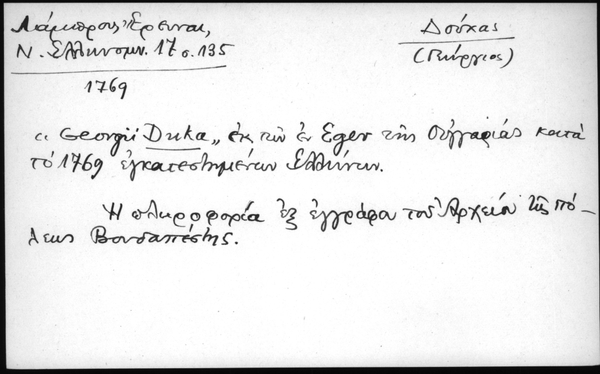 Λάμπρου, Ἔρευναι,
Ν. Ἑλληνομν. 17 σ. 135
1769
Δούκας
(Γεώργιος)
« Georgii Duka „ ἐκ τῶν ἐν Eger τῆς Οὑγγαρίας κατὰ
τὸ 1769 ἐγκατεστημένων Ἑλλήνων.
Ἡ πληροφορία ἐξ ἐγγράφου τοῦ Ἀρχείου τῆς πό-
λεως Βουδαπέστης.